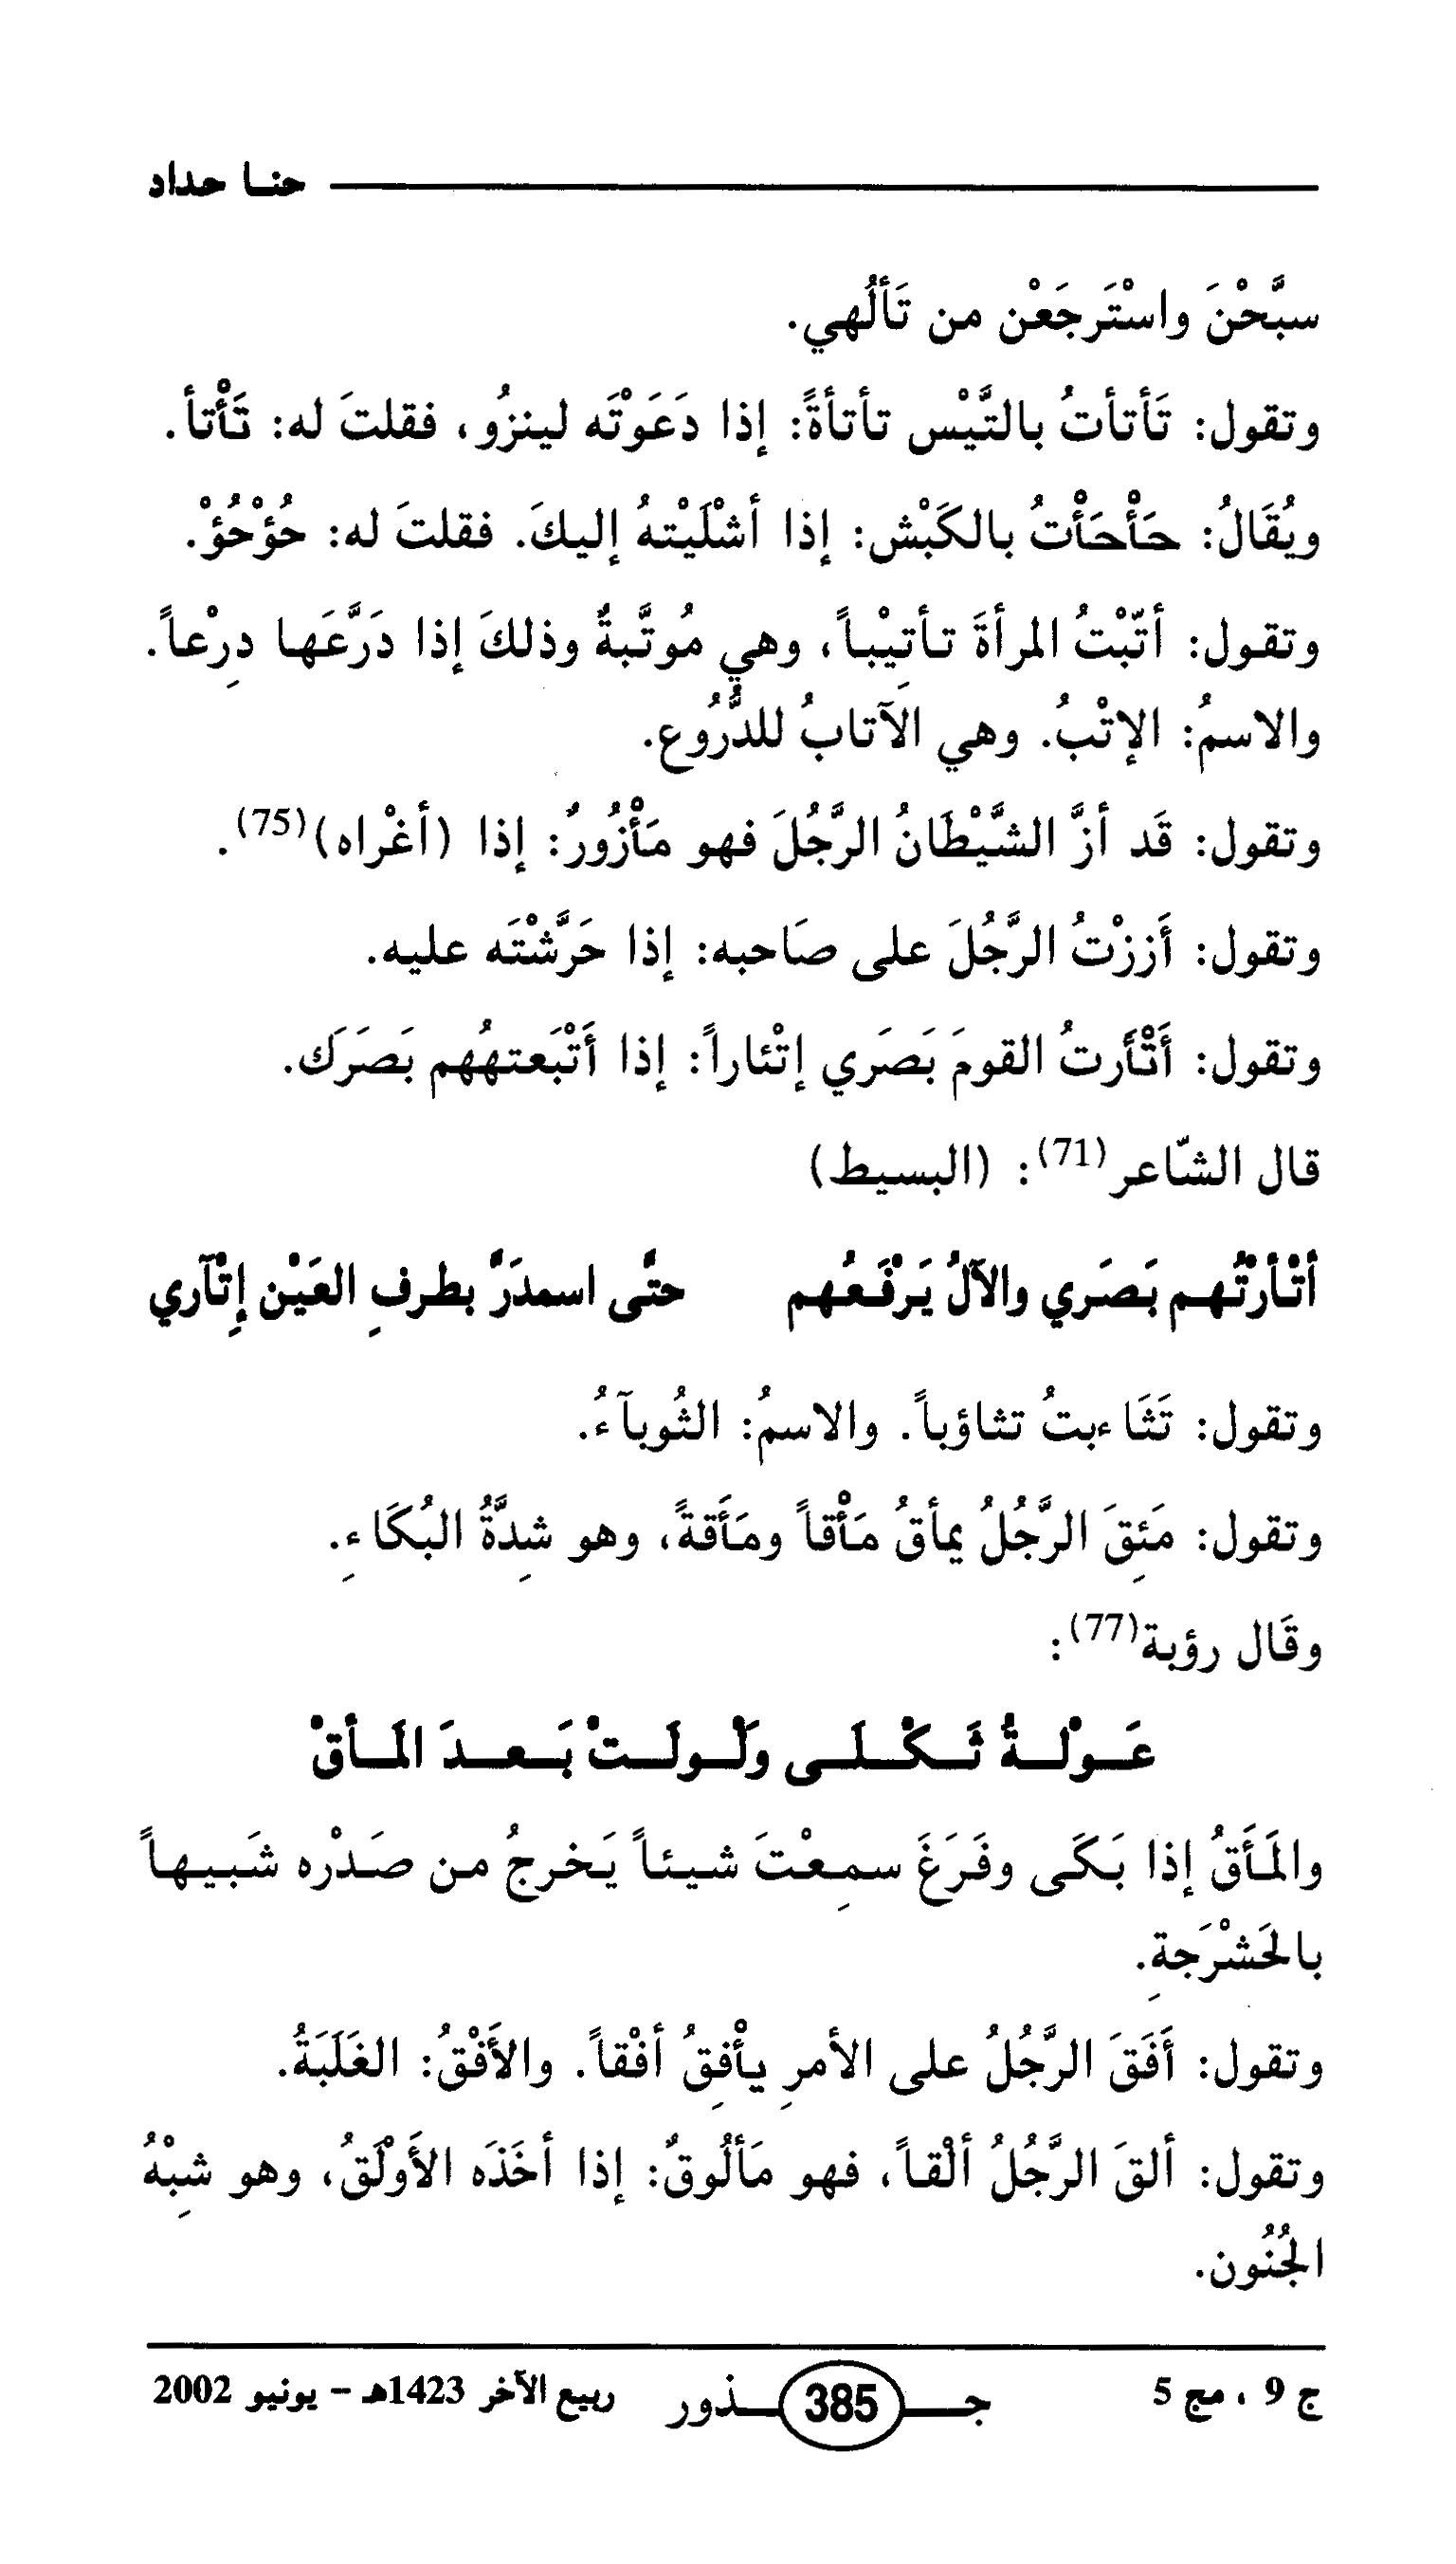 حنا حداد
سبَّحْنَ واسْتَرجَعْن من تَألُّهي.
وتقول: تَأتأتُ بالتَّيْس تأتأةً: إذا دَعَوْتَه لينزُو، فقلتَ له: تَأْتأ.
ويُقَالُ: حَأْحَأْتُ بالكَبْش: إذا أشْلَيْتهُ إليكَ. فقلتَ له: حُؤْحُؤْ.
وتقول: أتّبْتُ المرأةَ تأتِيْباً، وهي مُوتَّبةٌ وذلكَ إذا دَرَّعَها دِرْعاً.
والاسمُ: الإتْبُ. وهي الآتابُ للدُّرُوع.
وتقول: قَد أزَّ الشَّيْطَانُ الرَّجُلَ فهو مَأْزُورٌ: إذا (أغْراه)(75).
وتقول: أَززْتُ الرَّجُلَ على صَاحبه: إذا حَرَّشْتَه عليه.
وتقول: أَتْأَرتُ القومَ بَصَري إتْئاراً: إذا أَتْبَعتهُهم بَصَرَك.
قال الشّاعر(71): (البسيط)
أتْأرْتُهم بَصَري والآلُ يَرْفَعُهم حتَّى اسمدَرَّ بطرفِ العَيْن إتْآرِي
وتقول: تَثَاءبتُ تثاؤباً. والاسمُ: الثُوبآءُ.
وتقول: مَئِقَ الرَّجُلُ يمأقُ مَأْقاً ومَأَقةً، وهو شِدَّةُ البُكَاءِ.
وقَال رؤبة(77):
عَوْلةُ ثَكْلَى ولْولَتْ بَعدَ المَأقْ
والمَأَقُ إذا بَكَى وفَرَغَ سمِعْتَ شيئاً يَخرجُ من صَدْره شَبيهاً
بالحَشْرَجةِ.
وتقول: أَفَقَ الرَّجُلُ على الأمرِ يأْفِقُ أفْقاً. والأَفْقُ: الغَلَبَةُ.
وتقول: ألقَ الرَّجُلُ ألْقاً، فهو مَألُوقٌ: إذا أخَذَه الأَوْلَقُ، وهو شبِْهُ
الجُنُون.
ج 9 ، مج 5 جـذور 385 ربيع الآخر 1423هـ - يونيو 2002